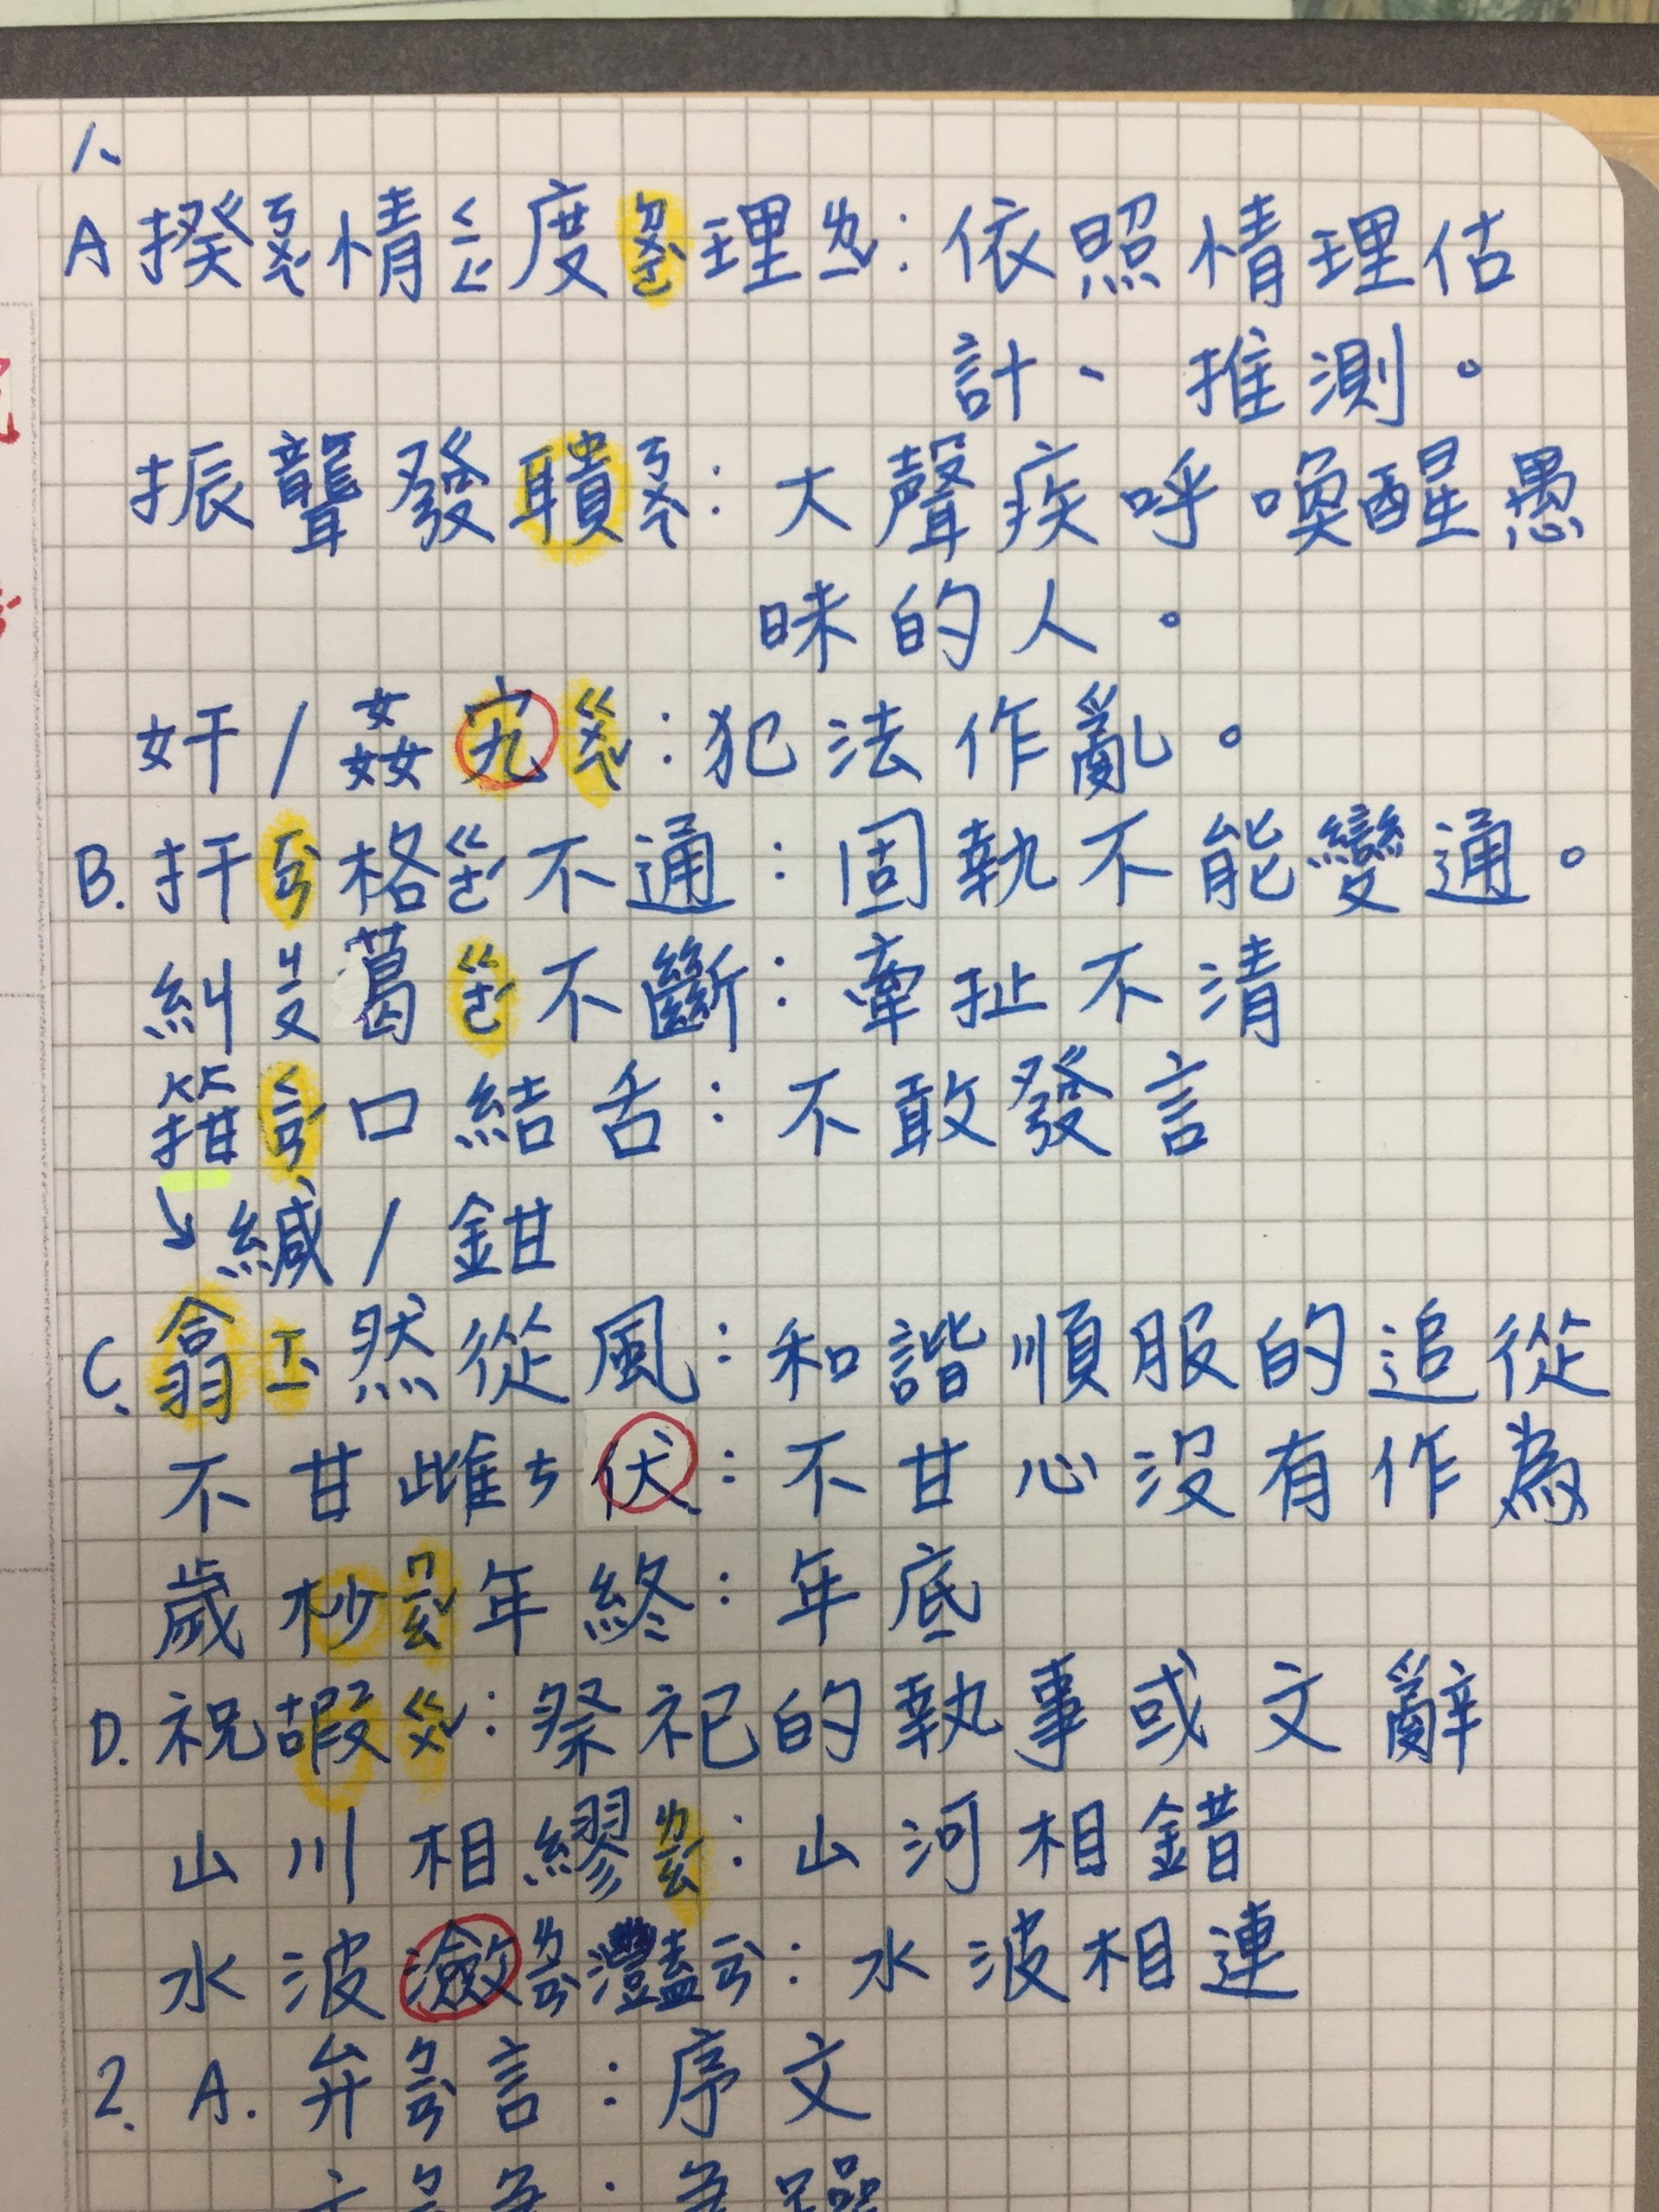 1、
A 揆ㄎㄨㄟˊ情ㄑㄧㄥˊ度ㄉㄨㄛˋ理ㄌㄧˇ：依照情理估
計、推測。
振聾發聵ㄎㄨㄟˋ：大聲疾呼喚醒愚
昧的人。
奸/姦宄ㄍㄨㄟˇ：犯法作亂。
B. 扞ㄏㄢˋ格ㄍㄜˊ不通：固執不能變通。
糾ㄐㄧㄡ葛ㄍㄜˊ不斷：牽扯不清
箝ㄑㄧㄢˊ口結舌：不敢發言
↘緘/鉗
C. 翕ㄒㄧˋ然從風：和諧順服的追從
不甘雌ㄘ伏：不甘心沒有作為
歲杪ㄇㄧㄠˇ年終：年底
D. 祝嘏ㄍㄨˇ：祭祀的執事或文辭
山川相繆ㄌㄧㄠˊ：山河相錯
水波瀲ㄌㄧㄢˋ灩ㄧㄢˋ：水波相連
2. A. 弁ㄅㄧㄢˋ言：序文